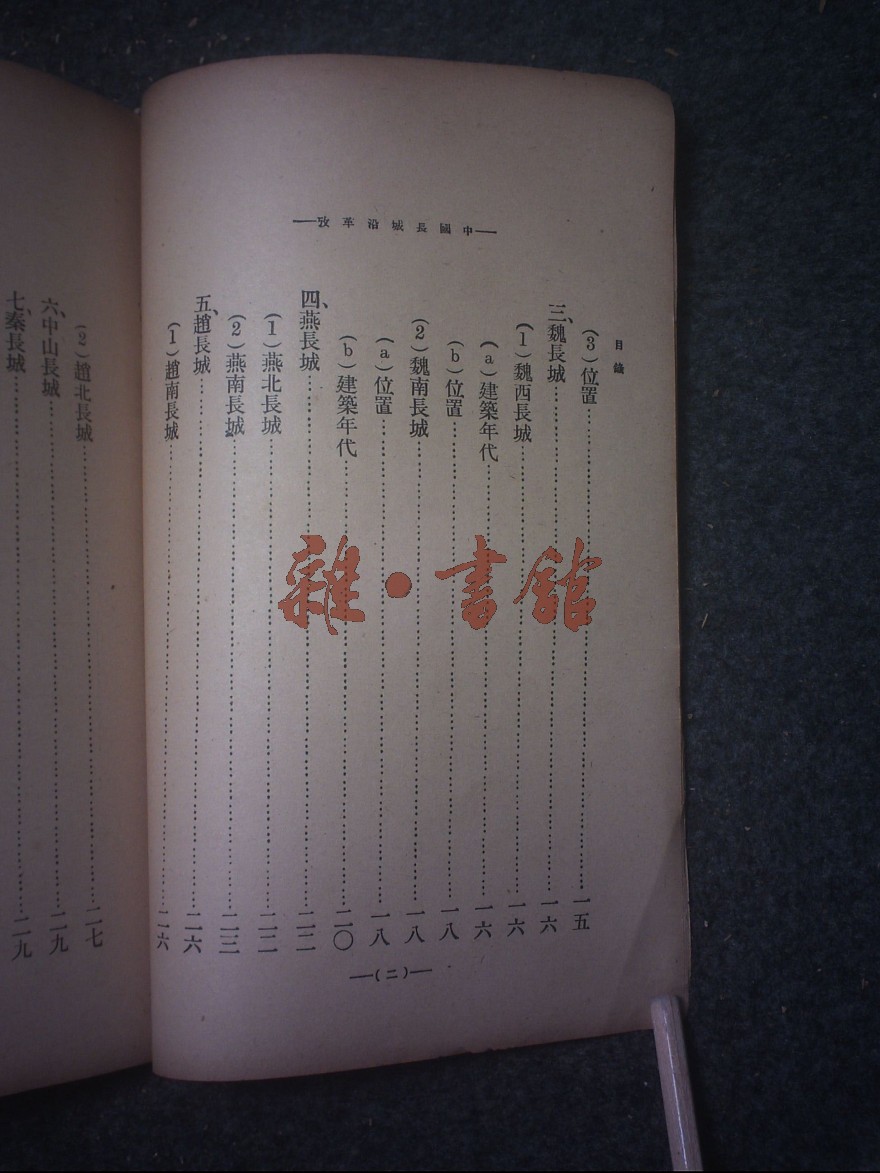 中國長城沿革攷
目錄
(3)位置……一五
三、魏長城……一六
(1)魏西長城……一六
(a)建築年代……一六
(b)位置……一八
(2)魏南長城……一八
(a)位置……一八
(b)建築年代……二〇
四、燕長城……二二
(1)燕北長城……二二
(2)燕南長城……二三
五、趙長城……二六
(1)趙南長城……二六
—(二)—
(2)趙北長城……二七
六、中山長城……二九
七、秦長城……二九
雜·書館